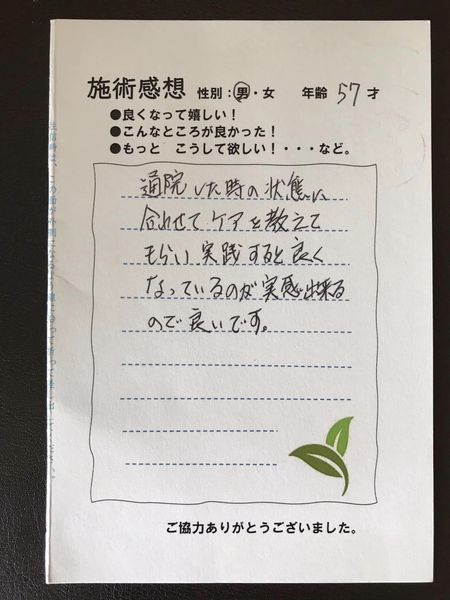 施術感想 性別：男・女 年齢 57 才
●良くなって嬉しい！
●こんなところが良かった！
●もっと こうして欲しい！・・・など。
通院した時の状態に
合わせてケアを教えて
もらい実践すると良く
なっているのが実感出来る
ので良いです。
ご協力ありがとうございました。